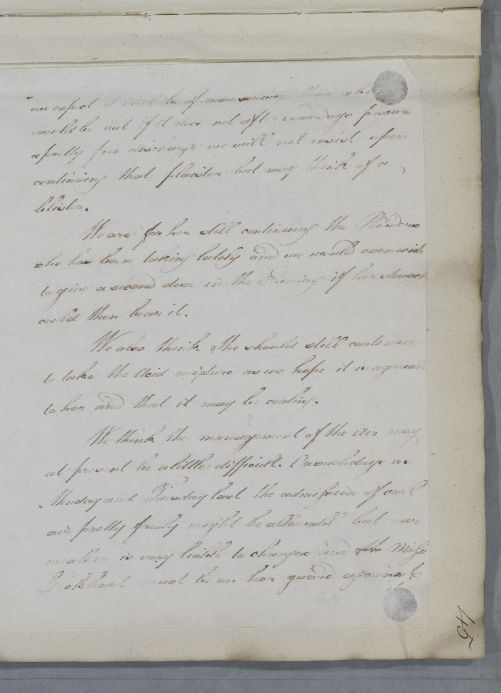 we expect it will be of more service than
would be but if it does not after some days procure
a pretty free discharge we will not insist upon
continuing that plaister but may think of a
blister.
We are for her still continuing the
she has been taking lately and we would even wish
to give a second dose in the Evening if her stomach
could then bear it.
We also think she should still continue
to take the Acid mixture as we hope it is agreeable
to her and that it may be cooling.
We think the management of the air may
at present be a little difficult. On such days as
Monday and Tuesday last the admission of cool
air pretty freely might be allowable but our
weather is very liable to changes and Miss
must be on her guard against
45